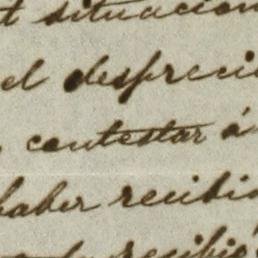 situacion
el despreci
contestar á
haber recibi
recibió